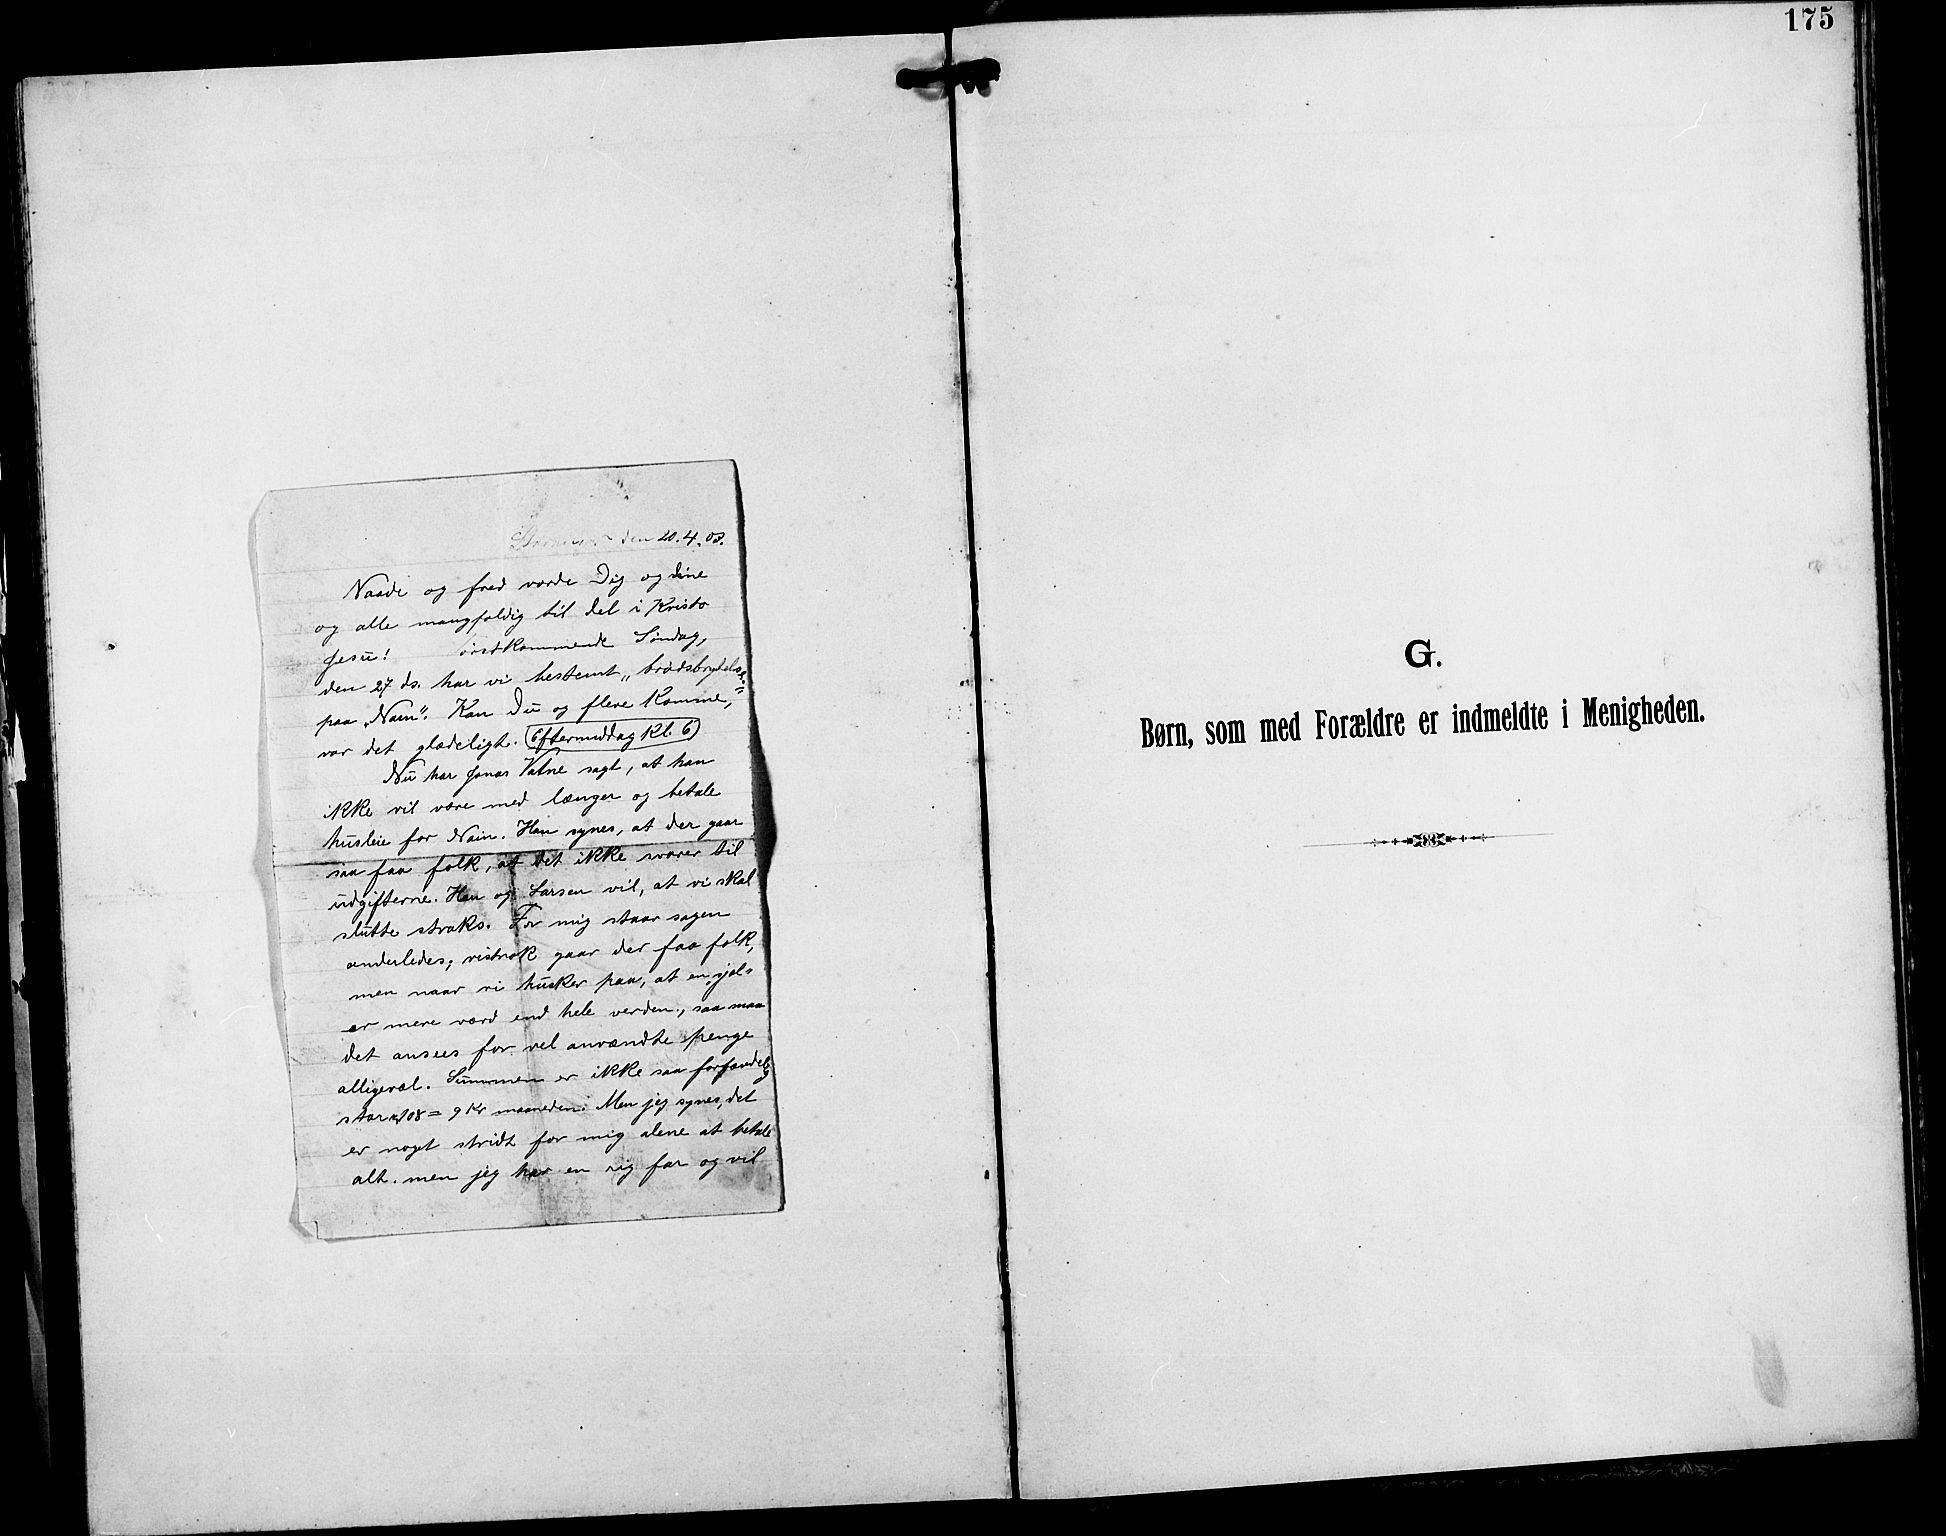 den 20.4.08.
Naade og fred vorde Dig og dine
og alle mangfoldig til del i Kristo
Jesu! ørstkommende Søndag,
den 27 ds. har vi bestemt „brødsbrydelse"
paa „Nain". Kan Du og flere komme,
var det glædeligt. Eftermiddag Kl. 6
Nu har Jonas Vatne sagt, at han
ikke vil være med længer og betale
husleie for Nain. Han synes, at der gaar
saa faa folk, at det ikke svarer til
udgifterne. Han og Larsen vil, at vi skal
slutte straks. For mig staar sagen
anderledes; vistnok gaar der faa folk,
men naar vi husker paa, at en „sjæl"
er mere værd end hele verden, saa maa
det ansees for vel anvændte penge
alligevæl. Summen er ikke saa forfærdelig
stor 108 = 9 Kr maaneden. Men jeg synes, det
er noget stridt for mig alene at betale
alt. men jeg har en rig far og vil
175
G.
Børn, som med Forældre er indmeldte i Menigheden.